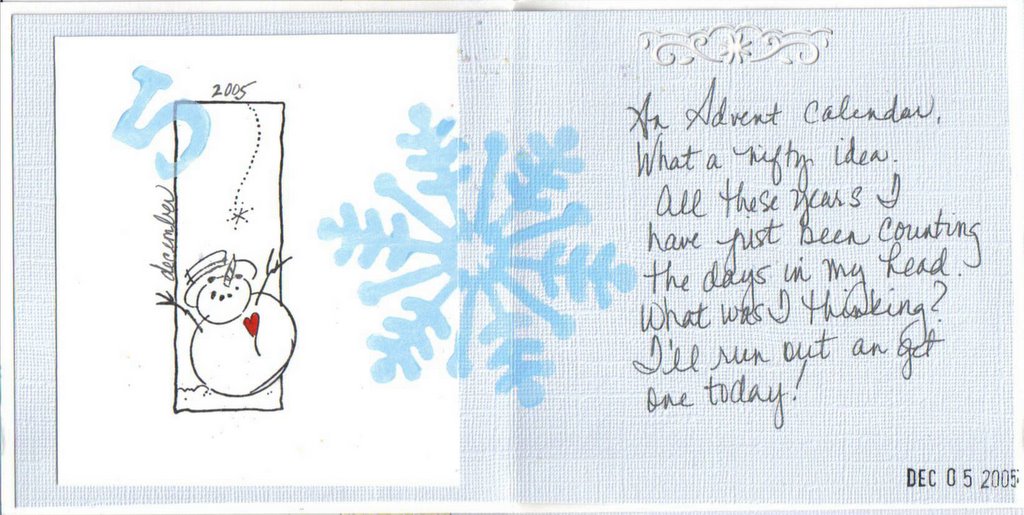 5
2005
december
An Advent Calendar.
What a nifty idea.
All these years I
have just been counting
the days in my head.
What was I thinking?
I'll run out an get
one today!
DEC 05 2005